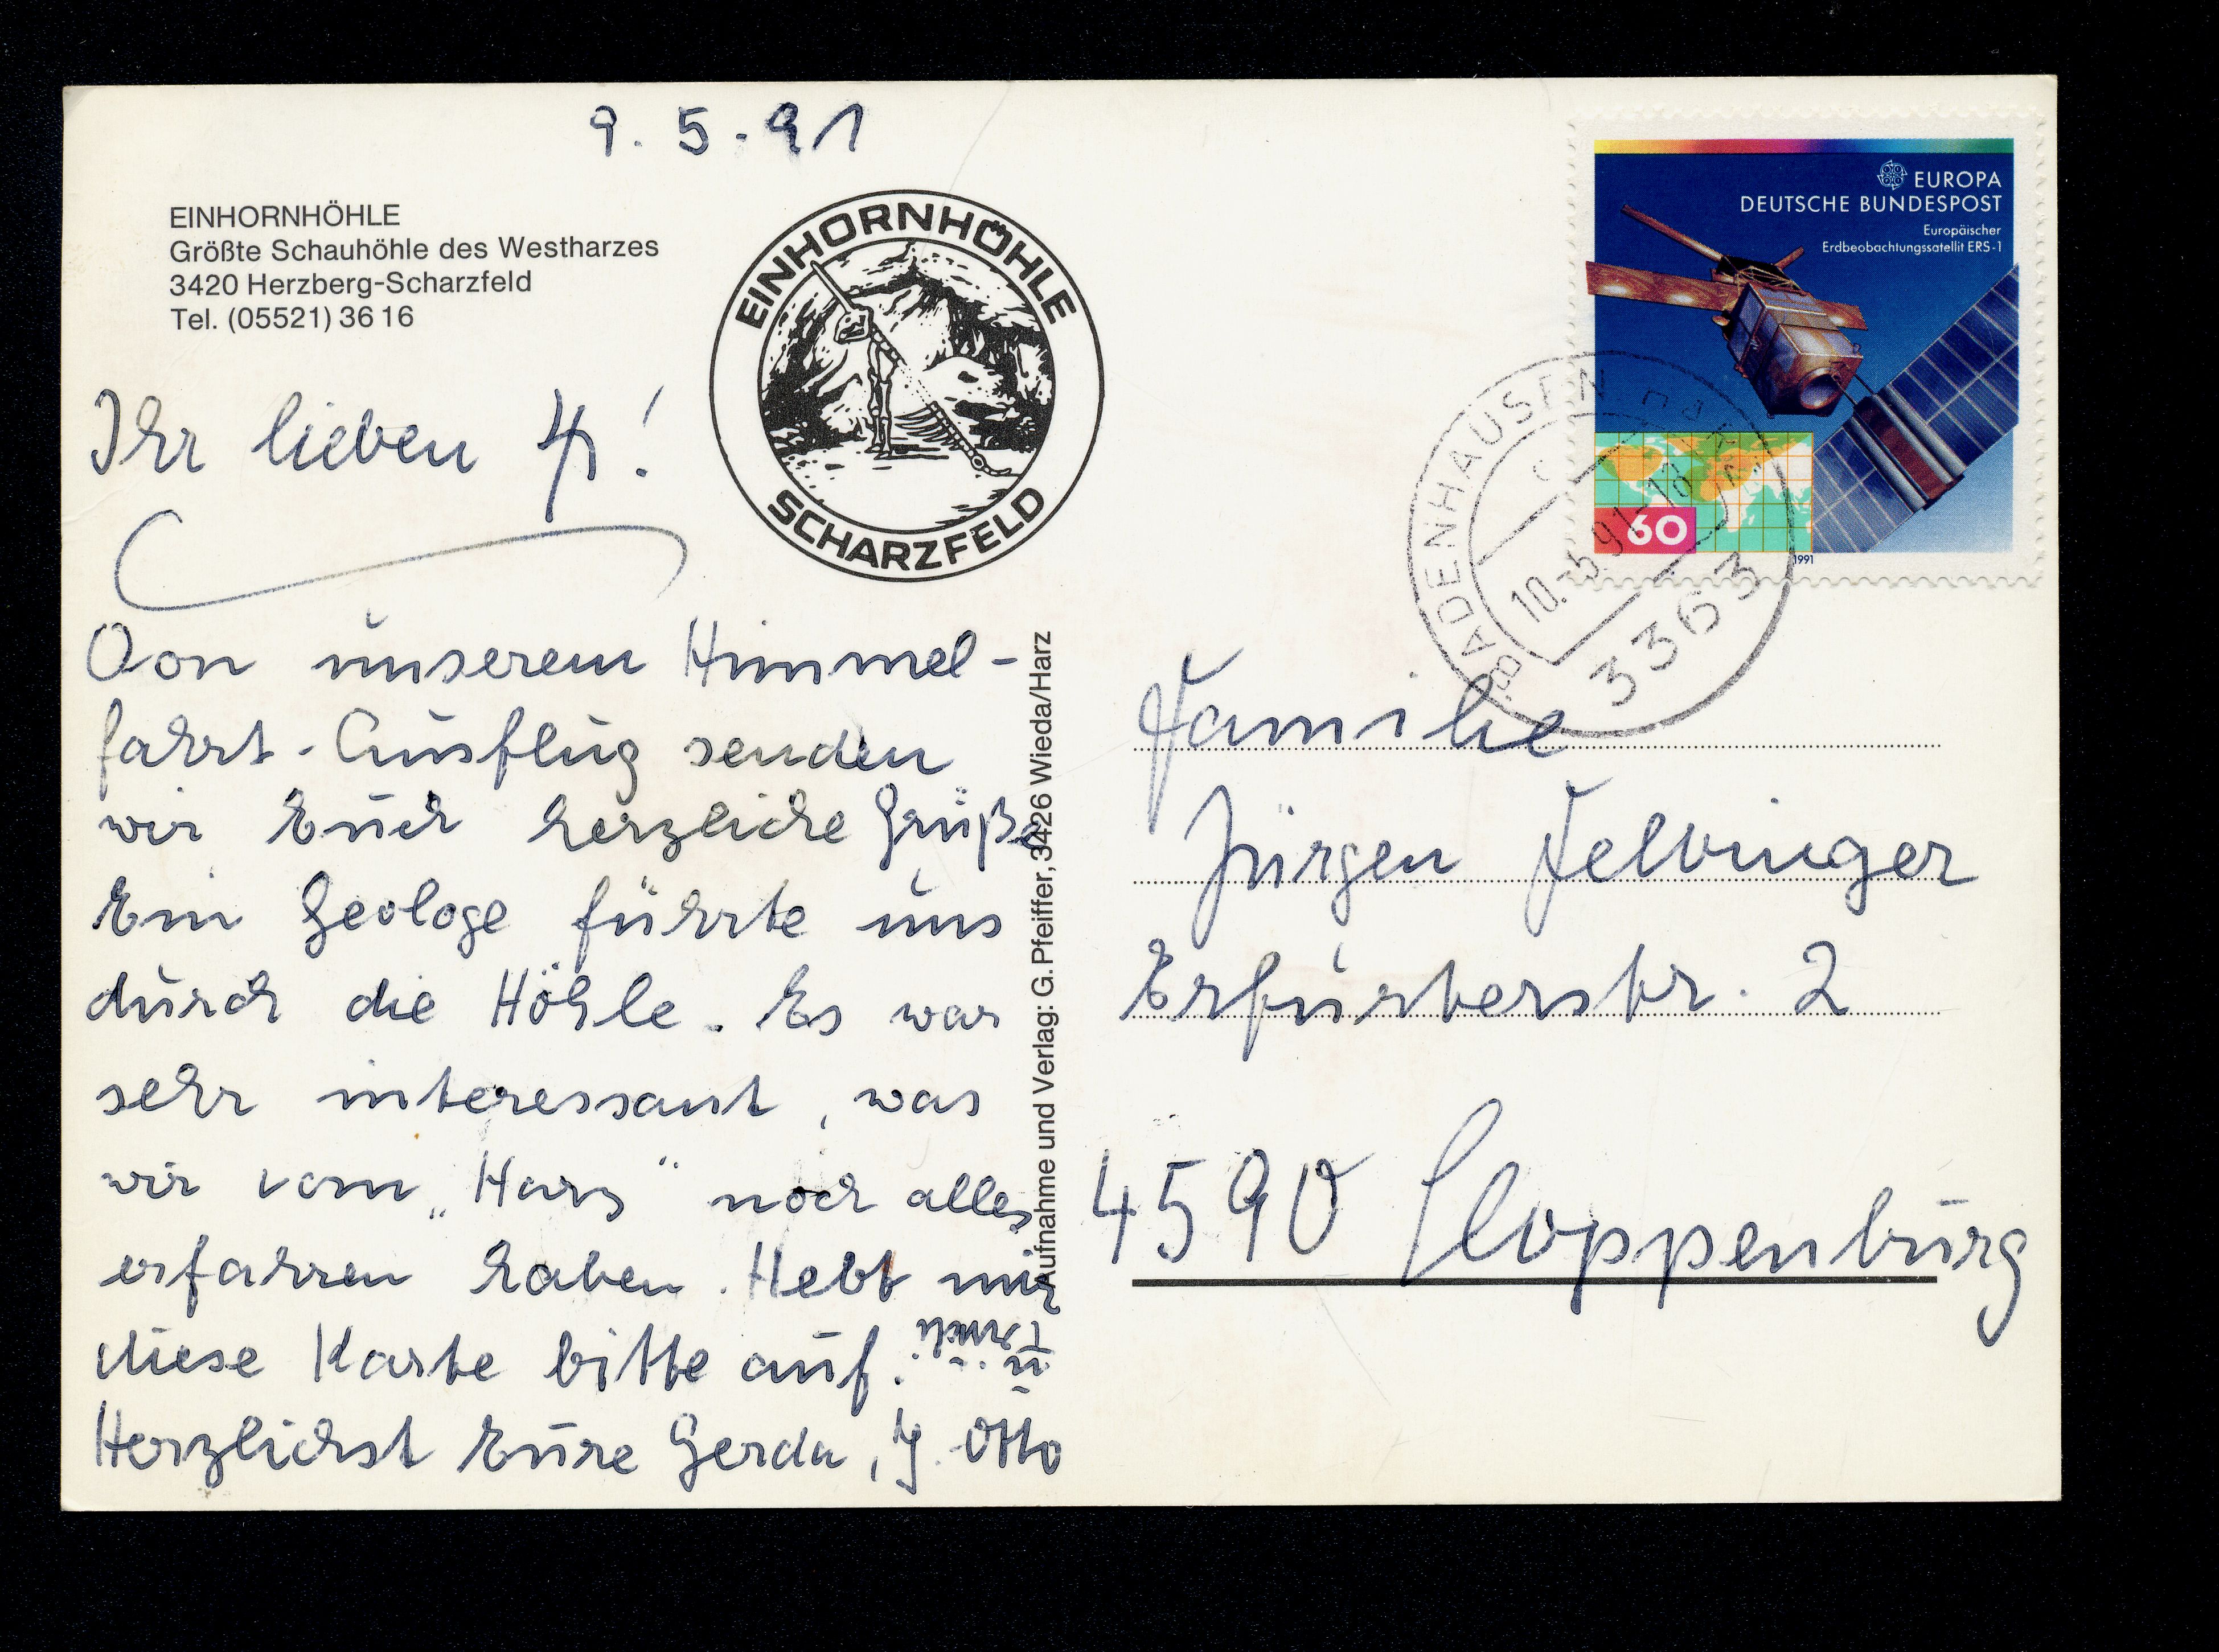 9. 5. 91
EINHORNHÖHLE
Größte Schauhöhle des Westharzes
3420 Herzberg-Scharzfeld
Tel. (05521) 36 16
EINHORNHÖHLE
SCHARZFELD
Ihr lieben 4!
Von unserem Himmel-
fahrt-Ausflug senden
wir Euch herzliche Grüße
Ein Geologe führte uns
durch die Höhle. Es war
sehr interessant, was
wir vom „Harz" noch alles
erfahren haben. Hebt mir
diese Karte bitte auf.
Herzlichst Eure Gerda, u. Otto
Aufnahme und Verlag: G. Pfeiffer, 3426 Wieda/Harz
EUROPA
DEUTSCHE BUNDESPOST
Europäischer
Erdbeobachtungssatellit ERS-1
60
1991
BADENHAUSEN HARZ
10.-5.91-18
3363
Familie
Jürgen Felbinger
Erfurterstr. 2
4590 Cloppenburg